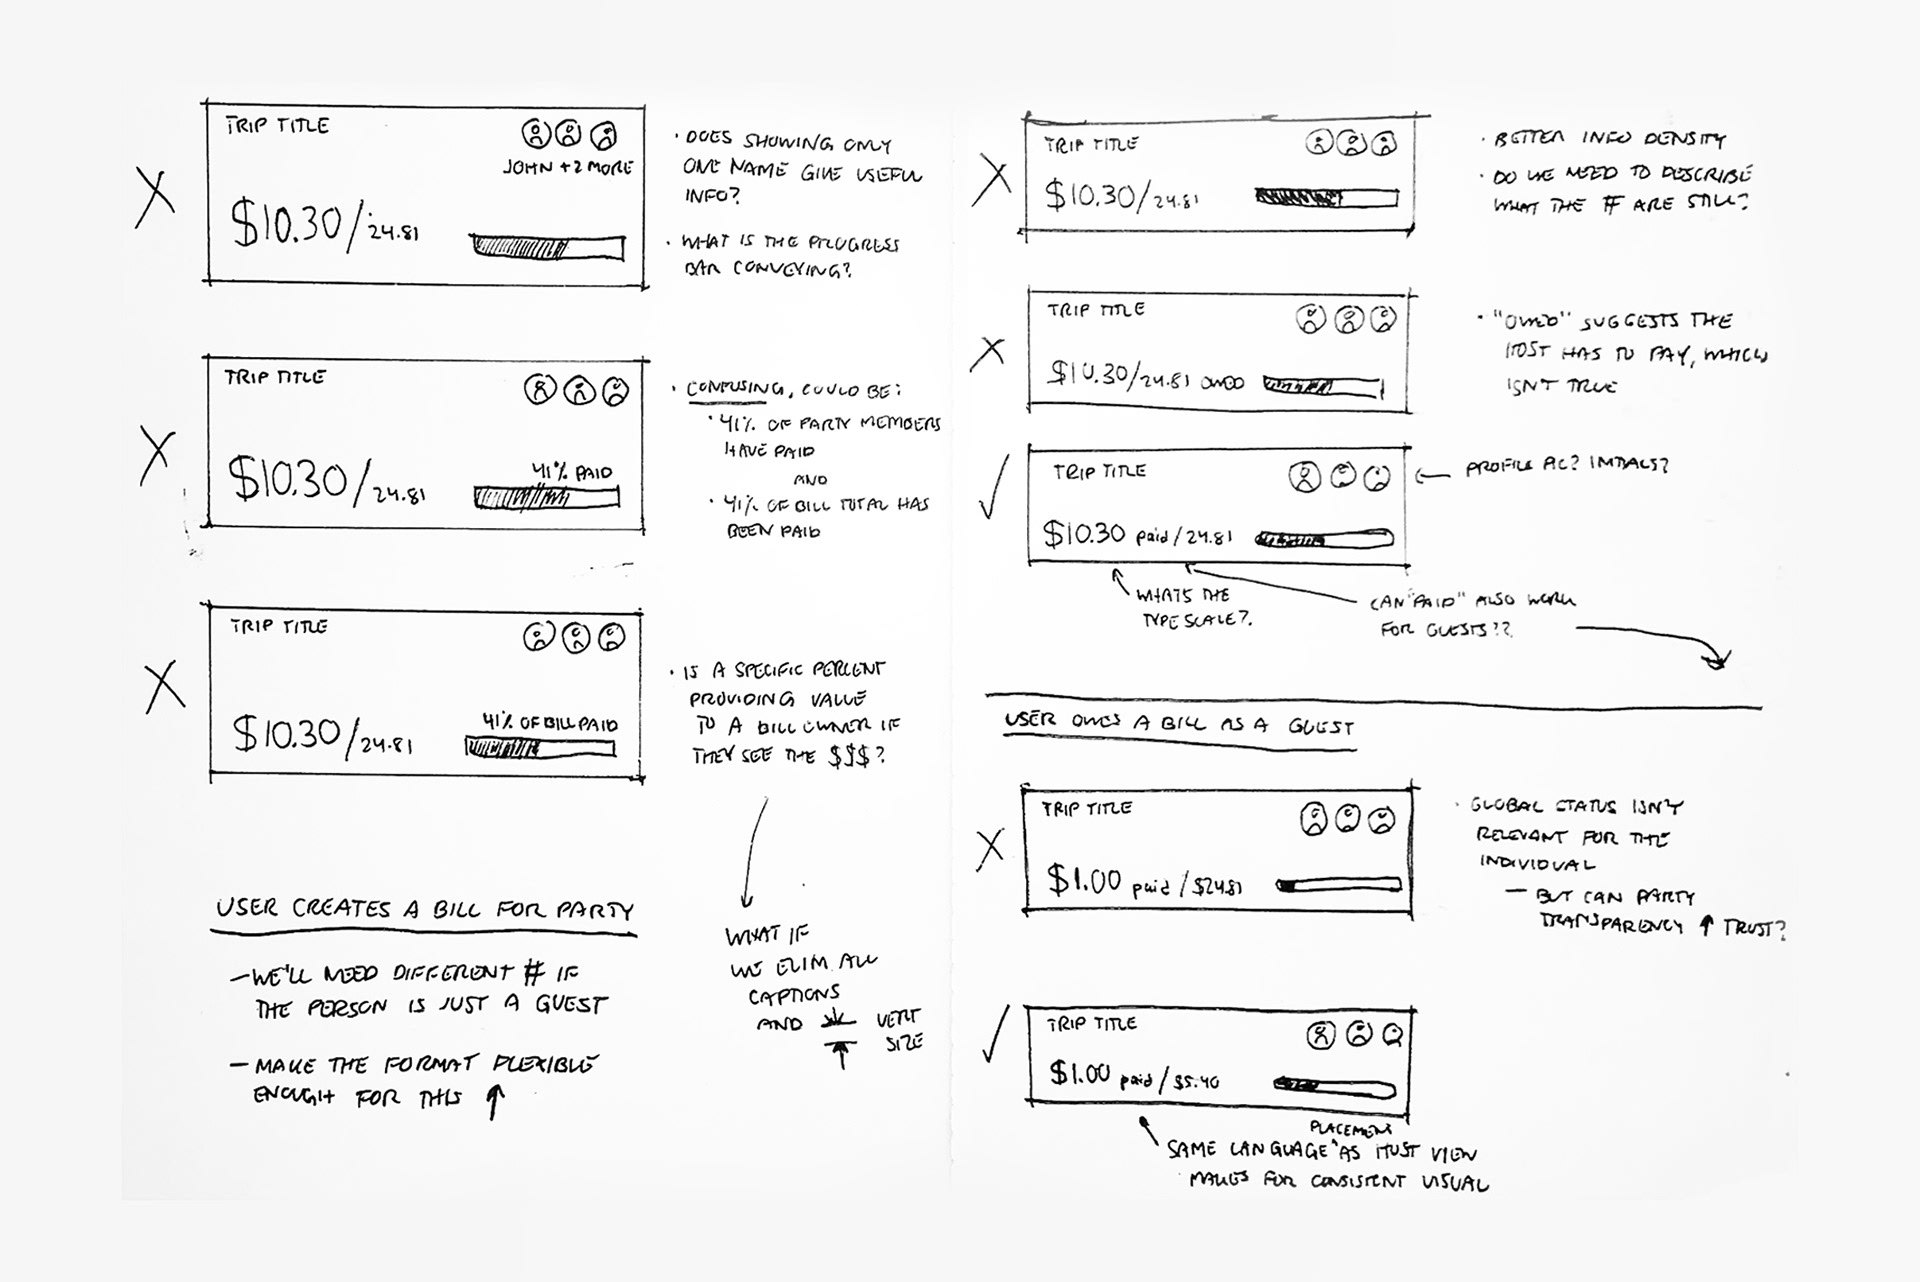 TRIP TITLE
JOHN +2 MORE
$10.30/24.81
· DOES SHOWING ONLY
ONE NAME GIVE USEFUL
INFO?
· WHAT IS THE PROGRESS
BAR CONVEYING?
TRIP TITLE
41% PAID
$10.30/24.81
· CONFUSING, COULD BE:
· 41% OF PARTY MEMBERS
HAVE PAID
AND
· 41% OF BILL TOTAL HAS
BEEN PAID
TRIP TITLE
41% OF BILL PAID
$10.30/24.81
· IS A SPECIFIC PERCENT
PROVIDING VALUE
TO A BILL OWNER IF
THEY SEE THE $$$?
WHAT IF
WE ELIM. ALL
CAPTIONS
AND VERT
SIZE
USER CREATES A BILL FOR PARTY
— WE'LL NEED DIFFERENT # IF
THE PERSON IS JUST A GUEST
— MAKE THE FORMAT FLEXIBLE
ENOUGH FOR THIS ↑
TRIP TITLE
$10.30/24.81
· BETTER INFO DENSITY
· DO WE NEED TO DESCRIBE
WHAT THE # ARE STILL?
TRIP TITLE
$10.30/24.81 OWED
· "OWED" SUGGESTS THE
HOST HAS TO PAY, WHICH
ISN'T TRUE
TRIP TITLE
$10.30 paid/24.81
← PROFILE PIC? INITIALS?
WHATS THE
TYPE SCALE?
CAN "PAID" ALSO WORK
FOR GUESTS??
USER OWES A BILL AS A GUEST
TRIP TITLE
$1.00 paid/$24.81
· GLOBAL STATUS ISN'T
RELEVANT FOR THE
INDIVIDUAL
— BUT CAN PARTY
TRANSPARENCY ↑ TRUST?
TRIP TITLE
$1.00 paid/$5.40
PLACEMENT
SAME LANGUAGE ^ AS HOST VIEW
MAKES FOR CONSISTENT VISUAL